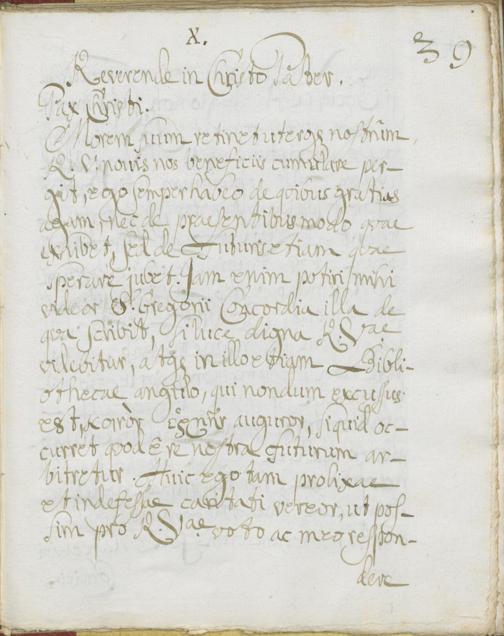 X.
39
Reverende in Christo Pater.
Pax Christi.
Morem suum retinet uterque nostrûm,
R. Vª. novis nos beneficiis cumulare per-
git, ego semper habeo de quibus gratias
agam, nec de praesentibus modo quae
exhibet, sed de futuris etiam quae
sperare jubet. Jam enim potiri mihi
videor S. Gregorii Concordia illa de
qua scribit, si luce digna R. Vae
videbitur, atque in illo etiam Bibli-
othecae angulo, qui nondum excussus
est, auguror, siquid oc-
curret quod è re nostra futurum ar-
bitretur. Huic ego tam prolixae
et indefessae caritati vereor, ut pos-
sim pro R. Vae. voto ac meo respon-
dere